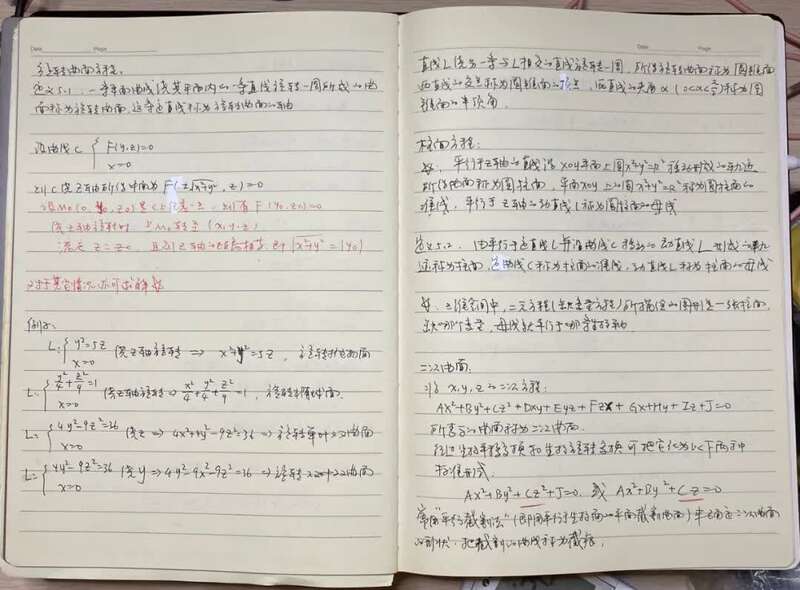 Date. Page.
旋转曲面方程.
定义5.1. 一条平面曲线绕其平面内的一条直线旋转一周所成的曲
面称为旋转曲面, 这条定直线称为旋转曲面的轴
设曲线C { F(y,z)=0
x=0
则C绕Z轴所得曲面为 F(±√x²+y², z)=0
设M₀(0, y₀, z₀)是C上任意一点, 则有 F(y₀,z₀)=0
绕Z轴旋转时 M₀转至 (x,y,z)
z=z₀, 且到Z轴的距离相等, 即√x²+y²=|y₀|
对于其它情况, 亦可求解
例如:
L:{ y²=5z
x=0
绕Z轴旋转 ⇒ x²+y²=5z, 旋转抛物面
L:{ y²/4+z²/9=1
x=0
绕Z轴旋转⇒ x²/4+y²/4+z²/9=1, 旋转椭球面
L:{ 4y²-9z²=36
x=0
绕Z ⇒ 4x²+4y²-9z²=36 ⇒旋转单叶双曲面
L:{ 4y²-9z²=36
x=0
绕y ⇒ 4y²-9x²-9z²=36 ⇒ 旋转双叶双曲面
Date. Page.
直线L绕另一条与L相交的直线旋转一周, 所得旋转曲面称为圆锥面
两直线的交点称为圆锥面的顶点, 两直线的夹角α(0<α<π/2)称为圆
锥面的半顶角.
柱面方程:
平行于Z轴的直线沿xoy平面上圆x²+y²=R²移动形成的轨迹
所得曲面称为圆柱面, 平面xoy上的圆x²+y²=R²称为圆柱面的
准线, 平行于Z轴的动直线L称为圆柱面的母线
定义5.2. 由平行于定直线L并沿曲线C移动的动直线L形成的轨
迹称为柱面, 定曲线C称为柱面的准线, 动直线L称为柱面的母线
空间中, 二元方程(缺变量方程)所表示的图形是一张柱面.
缺哪个变量, 母线就平行于哪条坐标轴
二次曲面.
x, y, z的二次方程:
Ax²+By²+Cz²+Dxy+Eyz+Fzx+Gx+Hy+Iz+J=0
所表示的曲面称为二次曲面.
经过坐标平移变换和坐标旋转变换可把它化为以下两种
标准形式.
Ax²+By²+Cz²+J=0, 或 Ax²+By²+Cz=0
常用"平行截割法"(即用平行于坐标面的平面截割曲面)来确定二次曲面
的形状, 把截割的曲线称为截痕.